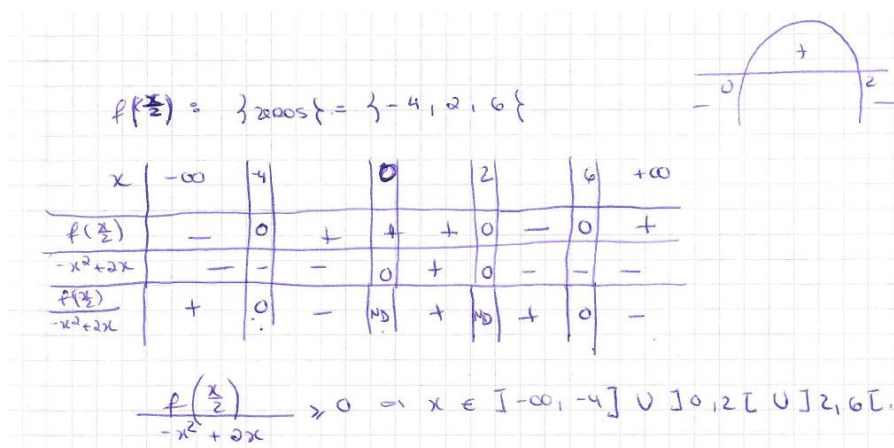 +
0 2
— —
f(x/2) : {zeros} = {-4, 2, 6}
x | -∞ | -4 | | 0 | | 2 | | 6 | +∞
f(x/2) | — | 0 | + | + | + | 0 | — | 0 | +
-x²+2x | — | - | - | 0 | + | 0 | - | - | -
f(x/2)/(-x²+2x) | + | 0 | - | ND | + | ND | + | 0 | -
f(x/2)/(-x²+2x) ⩾ 0 ⇒ x ∈ ]-∞, -4] ∪ ]0, 2[ ∪ ]2, 6[.